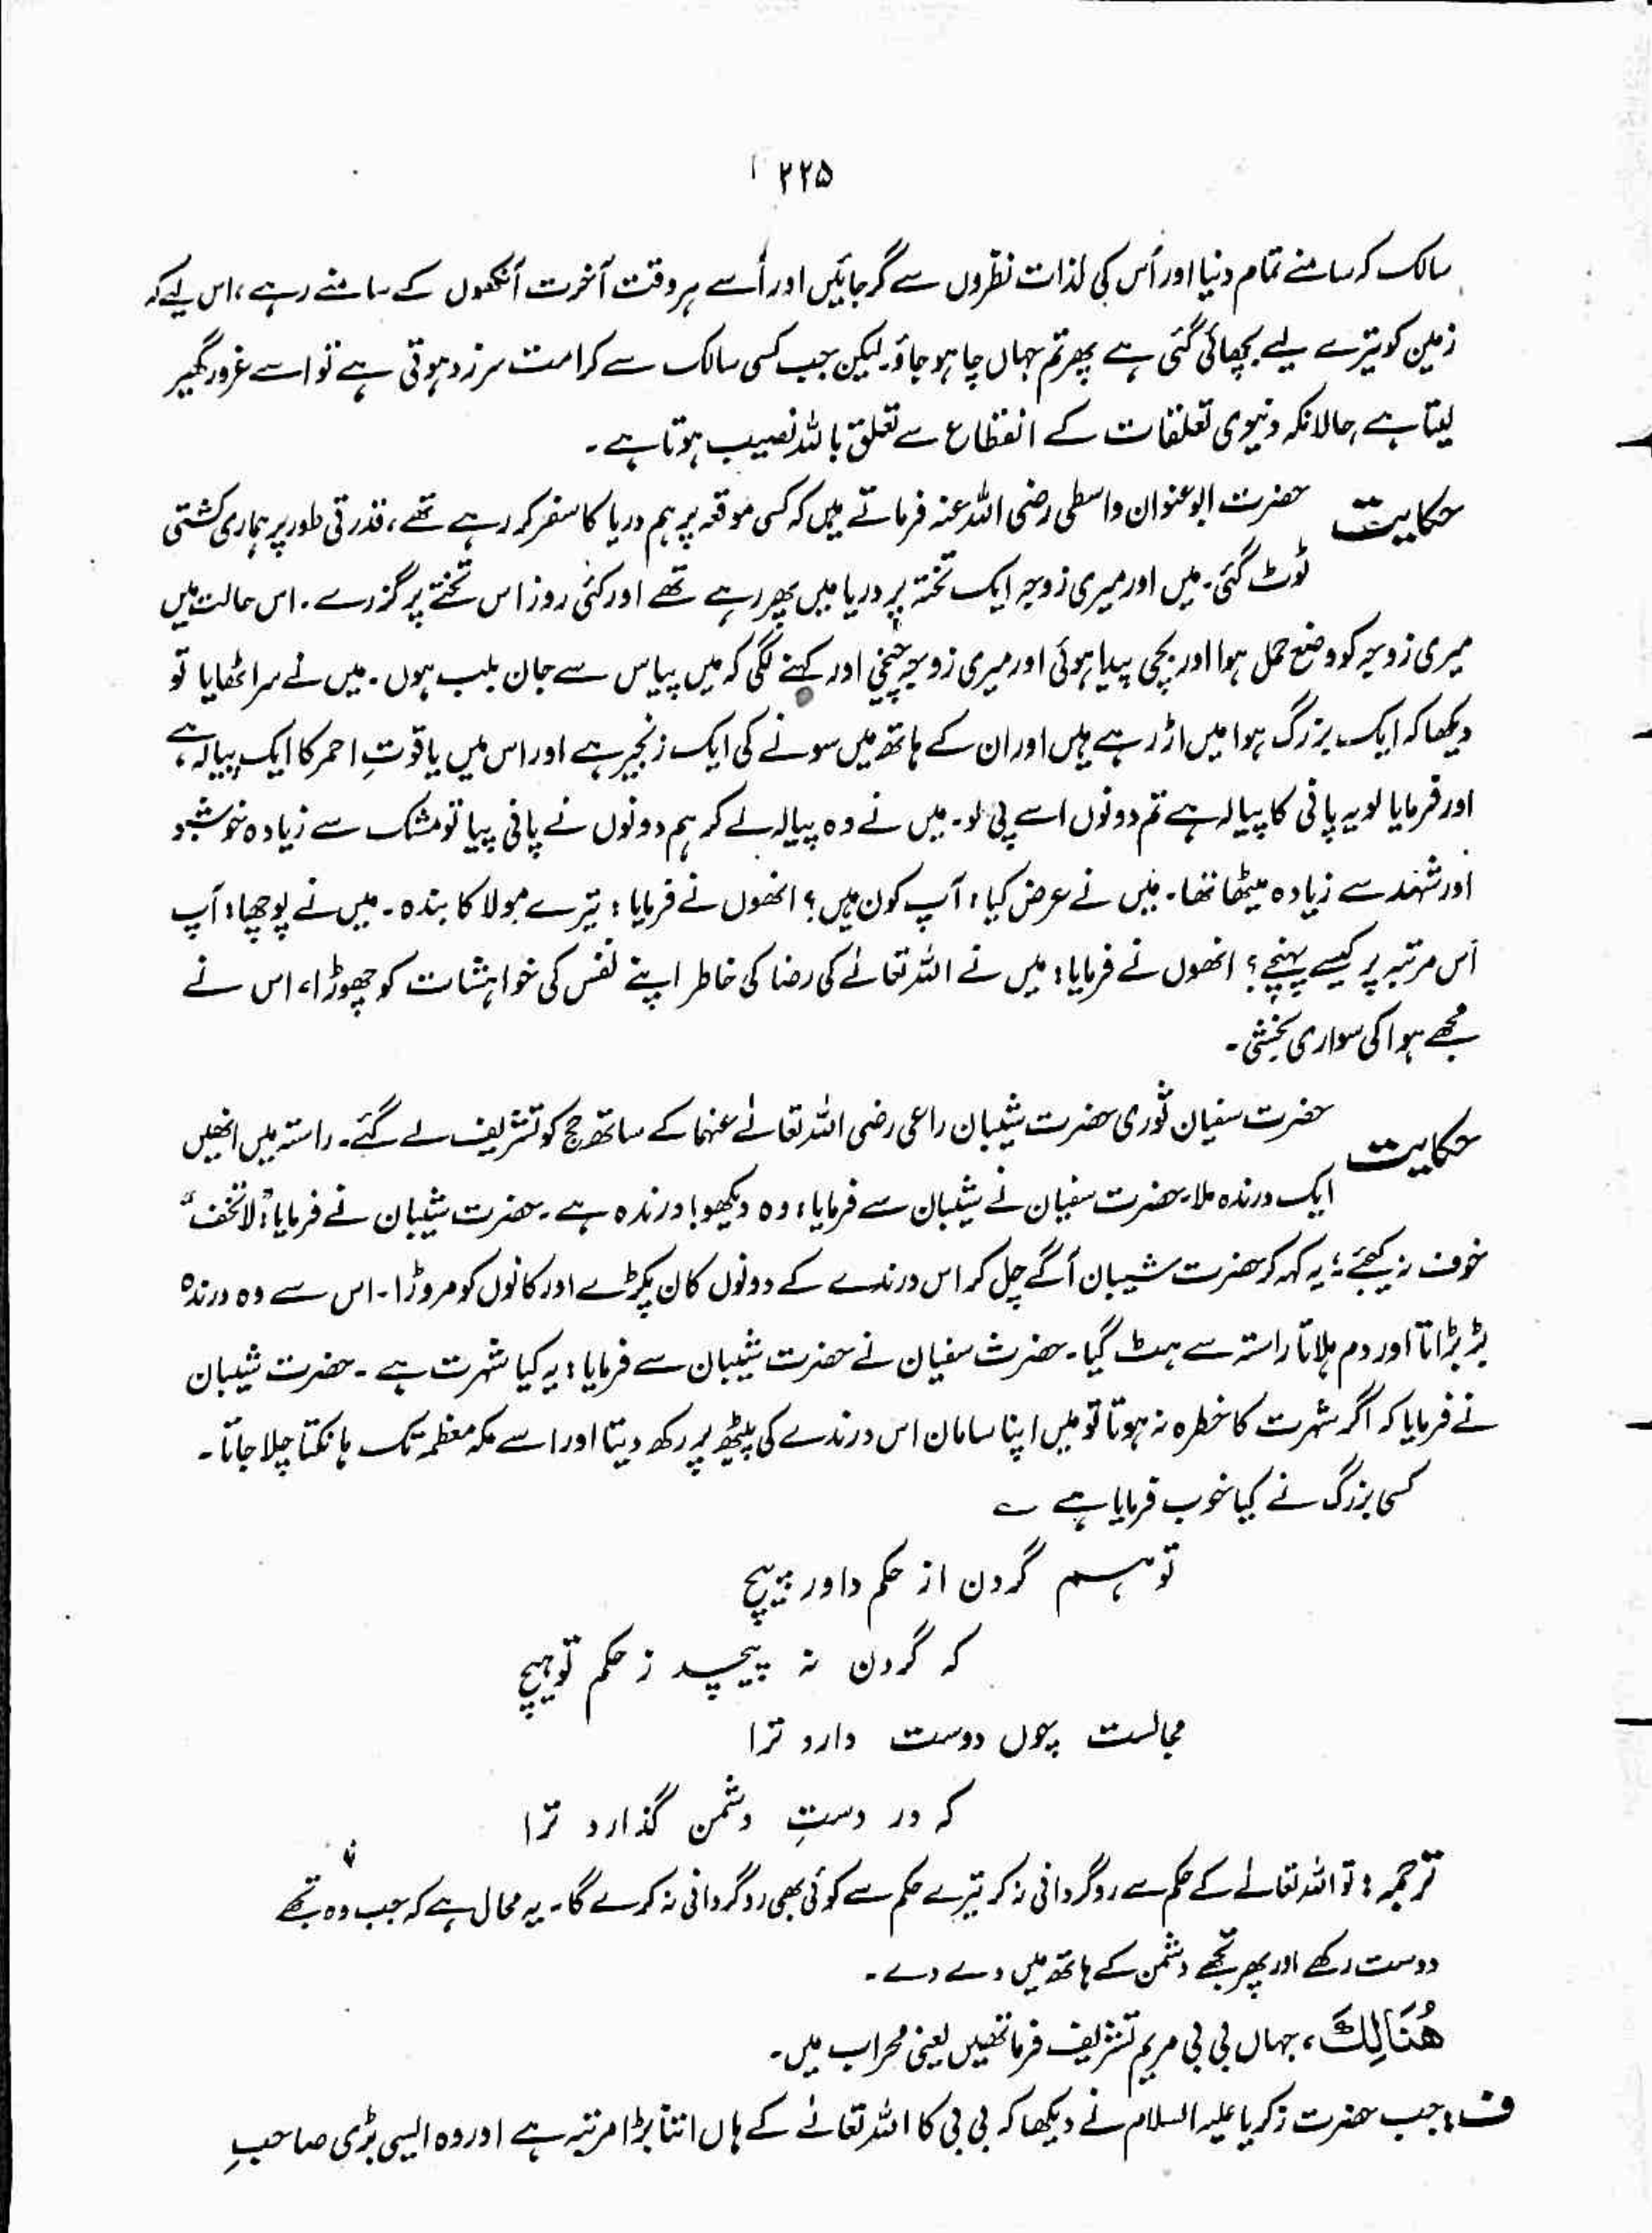 ۲۲۵
سالک کہ سامنے تمام دنیا اور اُس کی لذات نظروں سے گر جائیں اور اُسے ہر وقت آخرت آنکھوں کے سامنے رہے، اس لیے کہ
زمین کو تیرے لیے بچھائی گئی ہے پھر تم جہاں چاہو جاؤ۔ لیکن جب کسی سالک سے کرامت سرزد ہوتی ہے تو اسے غرور گھیر
لیتا ہے، حالانکہ دنیوی تعلقات کے انقطاع سے تعلق باللہ نصیب ہوتا ہے۔
حکایت حضرت ابو عنوان واسطی رضی اللہ عنہ فرماتے ہیں کہ کسی موقعہ پر ہم دریا کا سفر کر رہے تھے، قدرتی طور پر ہماری کشتی
ٹوٹ گئی۔ میں اور میری زوجہ ایک تختہ پر دریا میں پھر رہے تھے اور کئی روز اس تختے پر گزرے۔ اس حالت میں
میری زوجہ کو وضع حمل ہوا اور بچی پیدا ہوئی اور میری زوجہ چیخی اور کہنے لگی کہ میں پیاس سے جان بلب ہوں۔ میں نے سر اٹھایا تو
دیکھا کہ ایک بزرگ ہوا میں اڑ رہے ہیں اور ان کے ہاتھ میں سونے کی ایک زنجیر ہے اور اس میں یاقوتِ احمر کا ایک پیالہ ہے،
اور فرمایا لو یہ پانی کا پیالہ ہے تم دونوں اسے پی لو۔ میں نے وہ پیالہ لے کر ہم دونوں نے پانی پیا تو مشک سے زیادہ خوشبو
اور شہد سے زیادہ میٹھا تھا۔ میں نے عرض کیا: آپ کون ہیں؟ انھوں نے فرمایا: تیرے مولا کا بندہ۔ میں نے پوچھا: آپ
اس مرتبہ پر کیسے پہنچے؟ انھوں نے فرمایا: میں نے اللہ تعالےٰ کی رضا کی خاطر اپنے نفس کی خواہشات کو چھوڑا، اس نے
مجھے ہوا کی سواری بخشی۔
حکایت حضرت سفیان ثوری حضرت شیبان راعی رضی اللہ تعالےٰ عنہما کے ساتھ حج کو تشریف لے گئے۔ راستہ میں انھیں
ایک درندہ ملا۔ حضرت سفیان نے شیبان سے فرمایا: وہ دیکھو! درندہ ہے۔ حضرت شیبان نے فرمایا: "لا تخف"
خوف نہ کیجئے؛ یہ کہہ کر حضرت شیبان آگے چل کر اس درندے کے دونوں کان پکڑے اور کانوں کو مروڑا۔ اس سے وہ درندہ
بڑبڑاتا اور دم ہلاتا راستہ سے ہٹ گیا۔ حضرت سفیان نے حضرت شیبان سے فرمایا: یہ کیا شہرت ہے۔ حضرت شیبان
نے فرمایا کہ اگر شہرت کا خطرہ نہ ہوتا تو میں اپنا سامان اس درندے کی پیٹھ پر رکھ دیتا اور اسے مکہ معظمہ تک ہانکتا چلا جاتا۔
کسی بزرگ نے کیا خوب فرمایا ہے ؎
تو ہم گردن از حکم داور مپیچ
کہ گردن نہ پیچد ز حکم تو ہیچ
محالست چوں دوست دارد ترا
کہ در دستِ دشمن گذارد ترا
ترجمہ: تو اللہ تعالےٰ کے حکم سے روگردانی نہ کر تیرے حکم سے کوئی بھی روگردانی نہ کرے گا۔ یہ محال ہے کہ جب وہ تجھے
دوست رکھے اور پھر تجھے دشمن کے ہاتھ میں دے دے۔
هُنَالِكَ، جہاں بی بی مریم تشریف فرما تھیں یعنی محراب میں۔
ف: جب حضرت زکریا علیہ السلام نے دیکھا کہ بی بی کا اللہ تعالےٰ کے ہاں اتنا بڑا مرتبہ ہے اور وہ ایسی بڑی صاحبِ